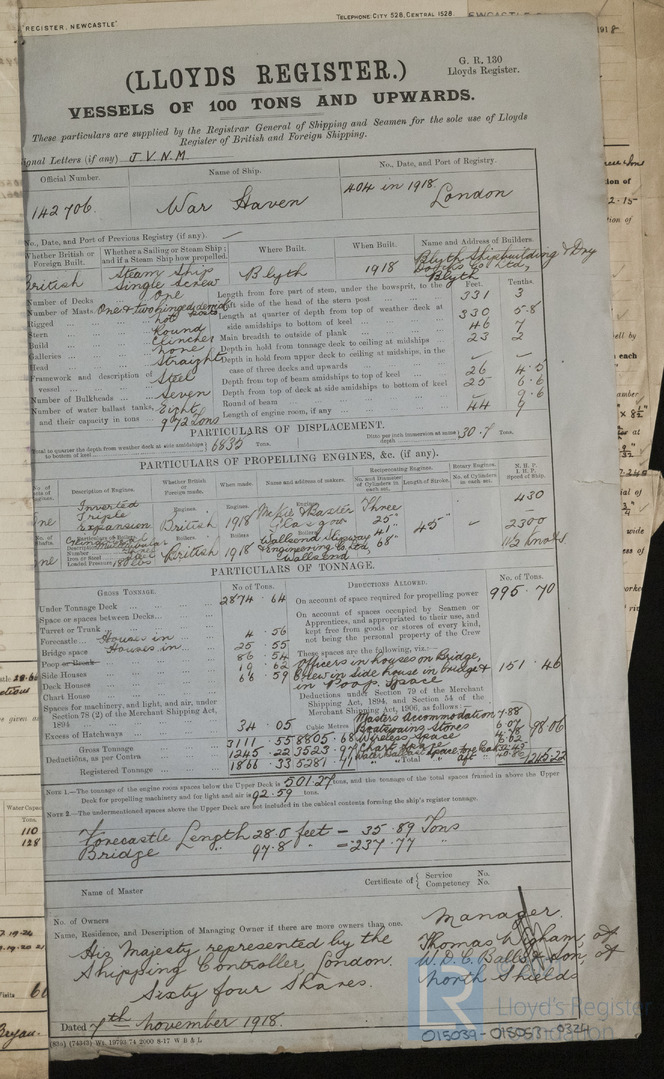 "REGISTER, NEWCASTLE"
TELEPHONE: CITY 528, CENTRAL 1528.
(LLOYDS REGISTER.)
G. R. 130
Lloyds Register.
VESSELS OF 100 TONS AND UPWARDS.
These particulars are supplied by the Registrar General of Shipping and Seamen for the sole use of Lloyds
Register of British and Foreign Shipping.
ignal Letters (if any) J.V.N.M
Official Number. Name of Ship. No., Date, and Port of Registry.
142706. War Haven 404 in 1918. London
No., Date, and Port of Previous Registry (if any).
Whether British or Foreign Built. Whether a Sailing or Steam Ship; and if a Steam Ship how propelled. Where Built. When Built. Name and Address of Builders.
British Steam Ship Single Screw Blyth 1918 Blyth Shipbuilding & Dry Docks Co Ltd, Blyth
Number of Decks One
Number of Masts One & two hinged derrick posts
Rigged not
Stern Round
Build Clincher
Galleries none
Head Straight
Framework and description of vessel Steel
Number of Bulkheads Seven
Number of water ballast tanks, Eight
and their capacity in tons 972 tons
Feet. Tenths.
Length from fore part of stem, under the bowsprit, to the aft side of the head of the stern post 331 3
Length at quarter of depth from top of weather deck at side amidships to bottom of keel 330 5.8
Main breadth to outside of plank 46 7
Depth in hold from tonnage deck to ceiling at midships 23 2
Depth in hold from upper deck to ceiling at midships, in the case of three decks and upwards
Depth from top of beam amidships to top of keel 26 4.5
Depth from top of deck at side amidships to bottom of keel 25 6.6
Round of beam 9.6
Length of engine room, if any 44 9
PARTICULARS OF DISPLACEMENT.
Total to quarter the depth from weather deck to side amidships to bottom of keel 6835 Tons. Ditto per inch immersion at same depth 30.7 Tons.
PARTICULARS OF PROPELLING ENGINES, &c. (if any).
Description of Engines. Whether British or Foreign made. When made. Name and address of makers. Reciprocating Engines. Rotary Engines. N. H. P. I. H. P. Speed of Ship.
No. and Diameter of Cylinders in each set. Length of Stroke. No. of Cylinders in each set.
Inverted Triple Expansion Engines. British Engines 1918 Engines. McKie & Baxter Glasgow Three 25" 41" 68" 45" 430
Boilers British Boilers 1918 Boilers Wallsend Slipway & Engineering Co Ltd, Wallsend 2300
Loaded Pressure 180 lbs 11½ knots
PARTICULARS OF TONNAGE.
GROSS TONNAGE. No of Tons.
Under Tonnage Deck 2874.64
Space or spaces between Decks
Turret or Trunk
Forecastle Houses in 4.56
Bridge space Houses in 25.55
Poop or Break 86.54
Side Houses 19.62
Deck Houses 66.59
Chart House
Spaces for machinery, and light, and air, under Section 78 (2) of the Merchant Shipping Act, 1894
Excess of Hatchways 34.05 Cubic Metres
Gross Tonnage 3111.55 8805.68
Deductions, as per Contra 1245.22 3523.97
Registered Tonnage 1866.33 5281.71
DEDUCTIONS ALLOWED. No. of Tons.
On account of space required for propelling power 995.70
On account of spaces occupied by Seamen or Apprentices, and appropriated to their use, and kept free from goods or stores of every kind, not being the personal property of the Crew
These spaces are the following, viz.:—
Officers in houses on Bridge,
Crew in side house in bridge &
in Poop Space 151.46
Deductions under Section 79 of the Merchant Shipping Act, 1894, and Section 54 of the Merchant Shipping Act, 1906, as follows:—
Masters accommodation 7.88
Boatswains Stores 6.07
Wireless Space 4.78
Chart Space 98.06
Total 1245.22
NOTE 1.—The tonnage of the engine room spaces below the Upper Deck is 501.27 tons, and the tonnage of the total spaces framed in above the Upper
Deck for propelling machinery and for light and air is 92.59 tons.
NOTE 2.—The undermentioned spaces above the Upper Deck are not included in the cubical contents forming the ship's register tonnage.
Forecastle Length 28.0 feet - 35.89 Tons
Bridge " 97.8 " = 237.77 "
Name of Master Certificate of { Service No. Competency No.
No. of Owners
Name, Residence, and Description of Managing Owner if there are more owners than one.
His Majesty represented by the
Shipping Controller, London.
Sixty four Shares.
Manager.
Thomas Wigham, of
W. D. C. Balls & Son, of
North Shields
Dated 7th November 1918.
(83a) (74343) Wt. 19793/74 2000 8-17 W B & L
Lloyd's Register
Foundation
015039-015053-0324